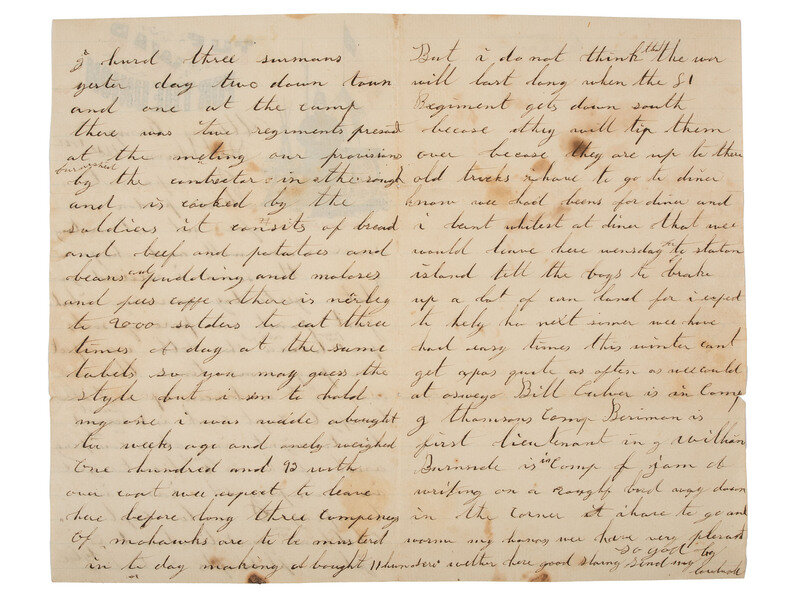 i hurd three surmans
yester day two down town
and one at the camp
there was two regiments present
at the meting our provision
furnished
by the contractor in the rough
and is cooked by the
soldiers it consits of bread
and beef and potatoes and
beans and pudding and molases
and pees coffe there is nerley
to 2000 solders to eat three
times of day at the same
tabels so you may guess the
style but i em to hold
my one i was weide abought
tw weeks ago and onely weighed
One hundred and 93 with
over coat we expect to leave
here before long three companeys
of mohawks are to be mustered
in to day making abought 11 hundered
But i do not think that the wor
will last long when the 81
Regiment gets down south
becose they will tip them
over becose they are up to there
old tricks i have to go to diner
know we had beens for diner and
i learnt whilest at diner that wee
would leave here wensday to staton
island tell the boys to brake
up a lot of corn land for i expect
to help ho next sumer wee have
had easy times this winter cant
get a pas quite as often as wee could
at oswego Bill Culver is in Comp
g thomsons Comp Beriman is
first lieutenant in g William
Burnside is in Comp f i am at
writing on a rough bord way down
in the corner i have to go and
worm my hands wee have very plesent
wether here good slaying send my
so god by